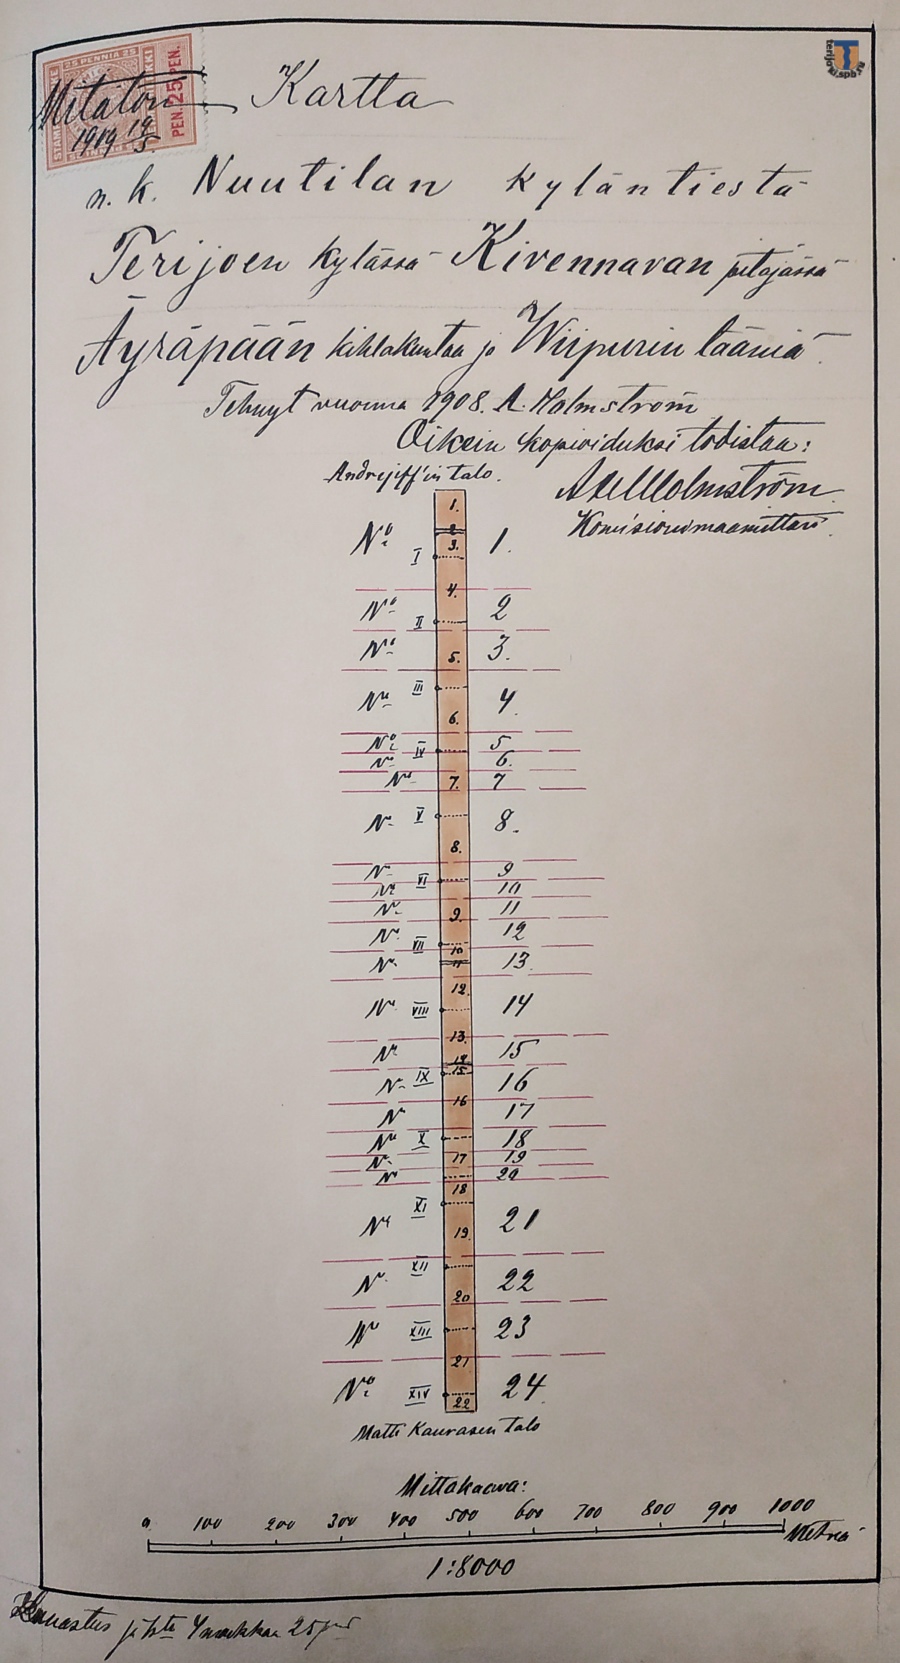 Kartta
n. k. Nuutilan kyläntiestä
Terijoen kylässä Kivennavan pitäjässä
Äyräpään kihlakuntaa ja Wiipurin lääniä.
Tehnyt vuonna 1908. A. Holmström
Oikein kopioiduksi todistaa:
Axel Holmström
Komisionimaamittari
Mitätön
1919 19/5
25 PENNIÄ 25
PEN. 25 PEN.
terijoki.spb.ru
Andrejeff'in talo.
1.
2
3.
No 1.
I
4.
No 2
II
No 3.
5.
III
No 4
6.
No 5
IV
No 6.
No 7
7.
V
No 8.
8.
No 9
VI
No 10
No 11
9.
No 12
VII
10
11
No 13.
12.
No 14
VIII
13.
No 15
14
15
IX
No 16
16
No 17
X
No 18
17
No 19
No 20
18
XI
No 21
19.
XII
No 22
20
No 23
XIII
21
No 24
XIV
22
Matti Kaurasen talo
Mittakaava:
0 100 200 300 400 500 600 700 800 900 1000
Metriä
1:8000
Lunastus 4 markkaa 25 pniä